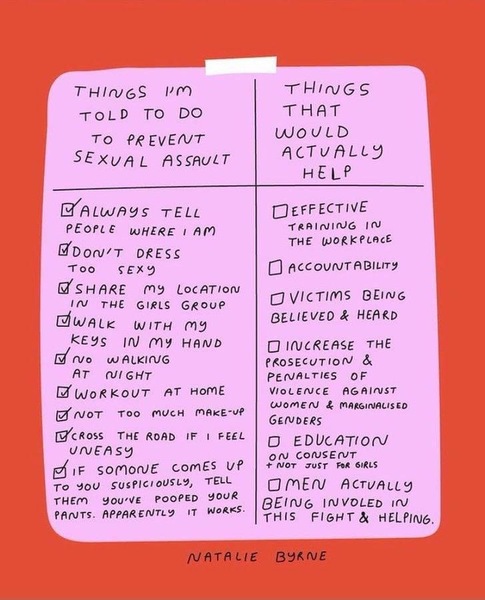 THINGS I'M
TOLD TO DO
TO PREVENT
SEXUAL ASSAULT
ALWAYS TELL
PEOPLE WHERE I AM
DON'T DRESS
TOO SEXY
SHARE MY LOCATION
IN THE GIRLS GROUP
WALK WITH MY
KEYS IN MY HAND
NO WALKING
AT NIGHT
WORKOUT AT HOME
NOT TOO MUCH MAKE-UP
CROSS THE ROAD IF I FEEL
UNEASY
IF SOMONE COMES UP
TO YOU SUSPICIOUSLY, TELL
THEM YOU'VE POOPED YOUR
PANTS. APPARENTLY IT WORKS.
THINGS
THAT
WOULD
ACTUALLY
HELP
EFFECTIVE
TRAINING IN
THE WORKPLACE
ACCOUNTABILITY
VICTIMS BEING
BELIEVED & HEARD
INCREASE THE
PROSECUTION &
PENALTIES OF
VIOLENCE AGAINST
WOMEN & MARGINALISED
GENDERS
EDUCATION
ON CONSENT
+ NOT JUST FOR GIRLS
MEN ACTUALLY
BEING INVOLED IN
THIS FIGHT & HELPING.
NATALIE BYRNE